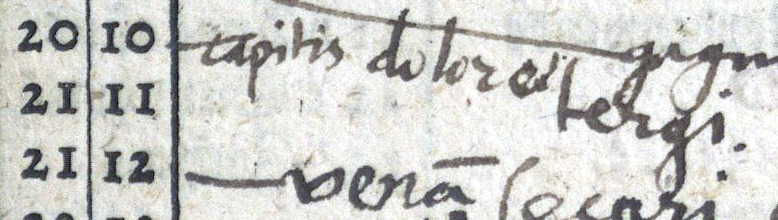 20 10 capitis dolores
21 11 tergi.
21 12 venā secari